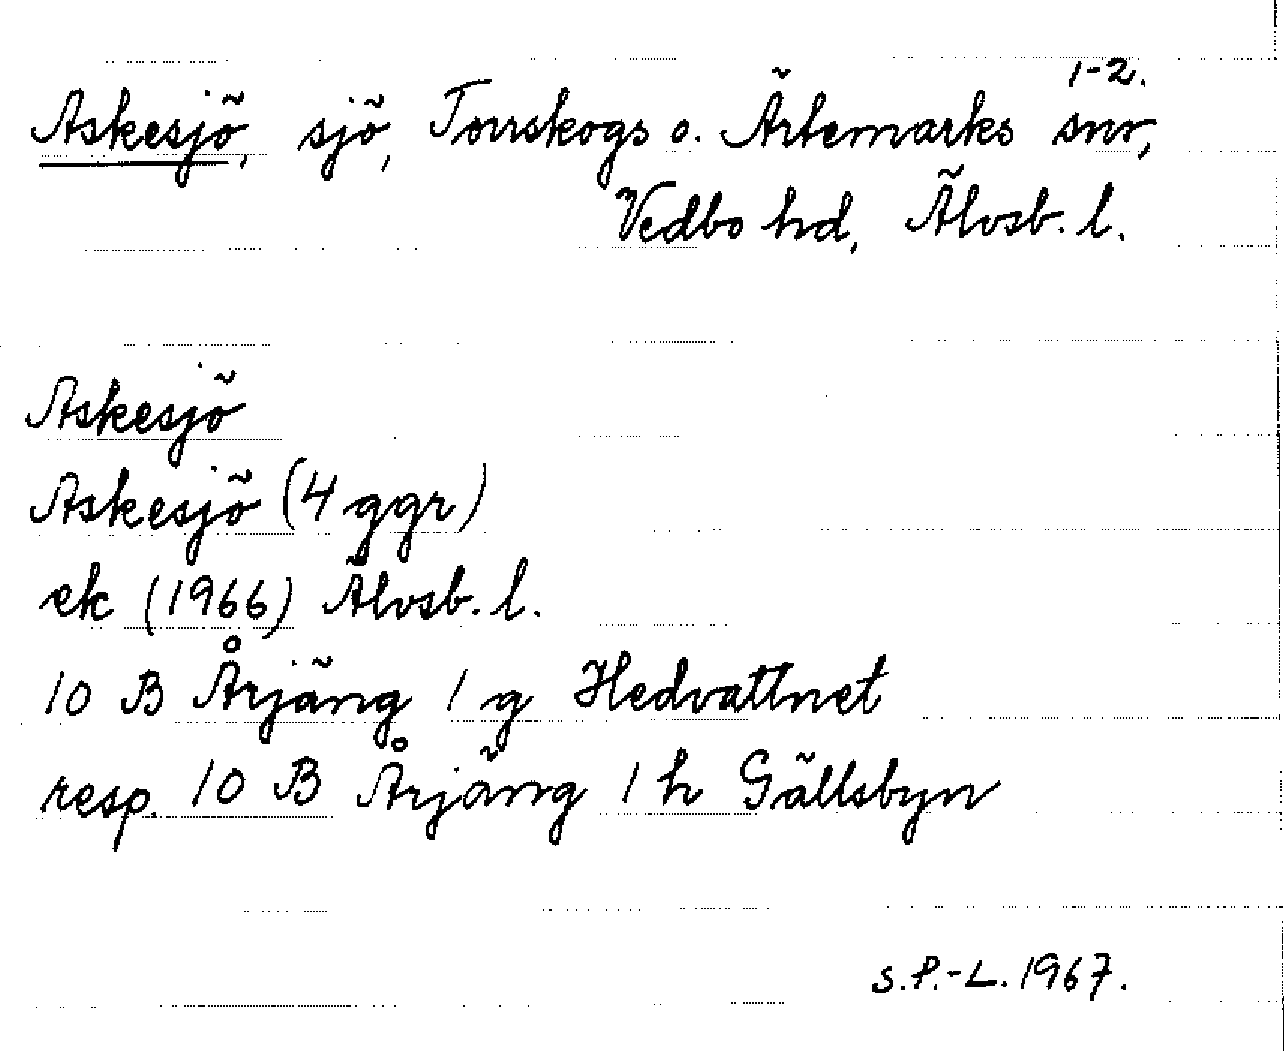 1-2.
Askesjö, sjö, Torrskogs o. Ärtemarks snr,
Vedbo hd, Älvsb. l.
Askesjö
Askesjö (4 ggr)
ek (1966) Älvsb. l.
10 B Årjäng 1 g Hedvattnet
resp. 10 B Årjäng 1 h Gällsbyn
S.P.-L. 1967.